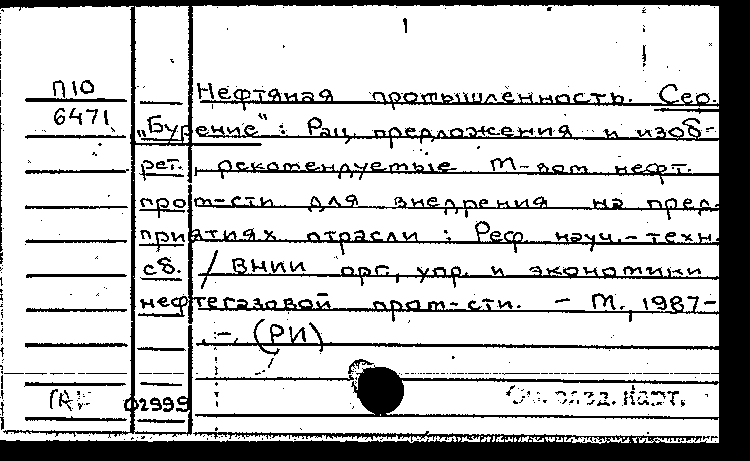 1
П10
6471
Нефтяная промышленность. Сер.
„Бурение": Рац. предложения и изоб-
рет., рекомендуемые М-вом нефт.
пром-сти для внедрения на пред-
приятиях отрасли : Реф. науч.-техн.
сб. / ВНИИ орг., упр. и экономики
нефтегазовой пром-сти. – М., 1987-
.–. (РИ)
02999
См. разд. карт.